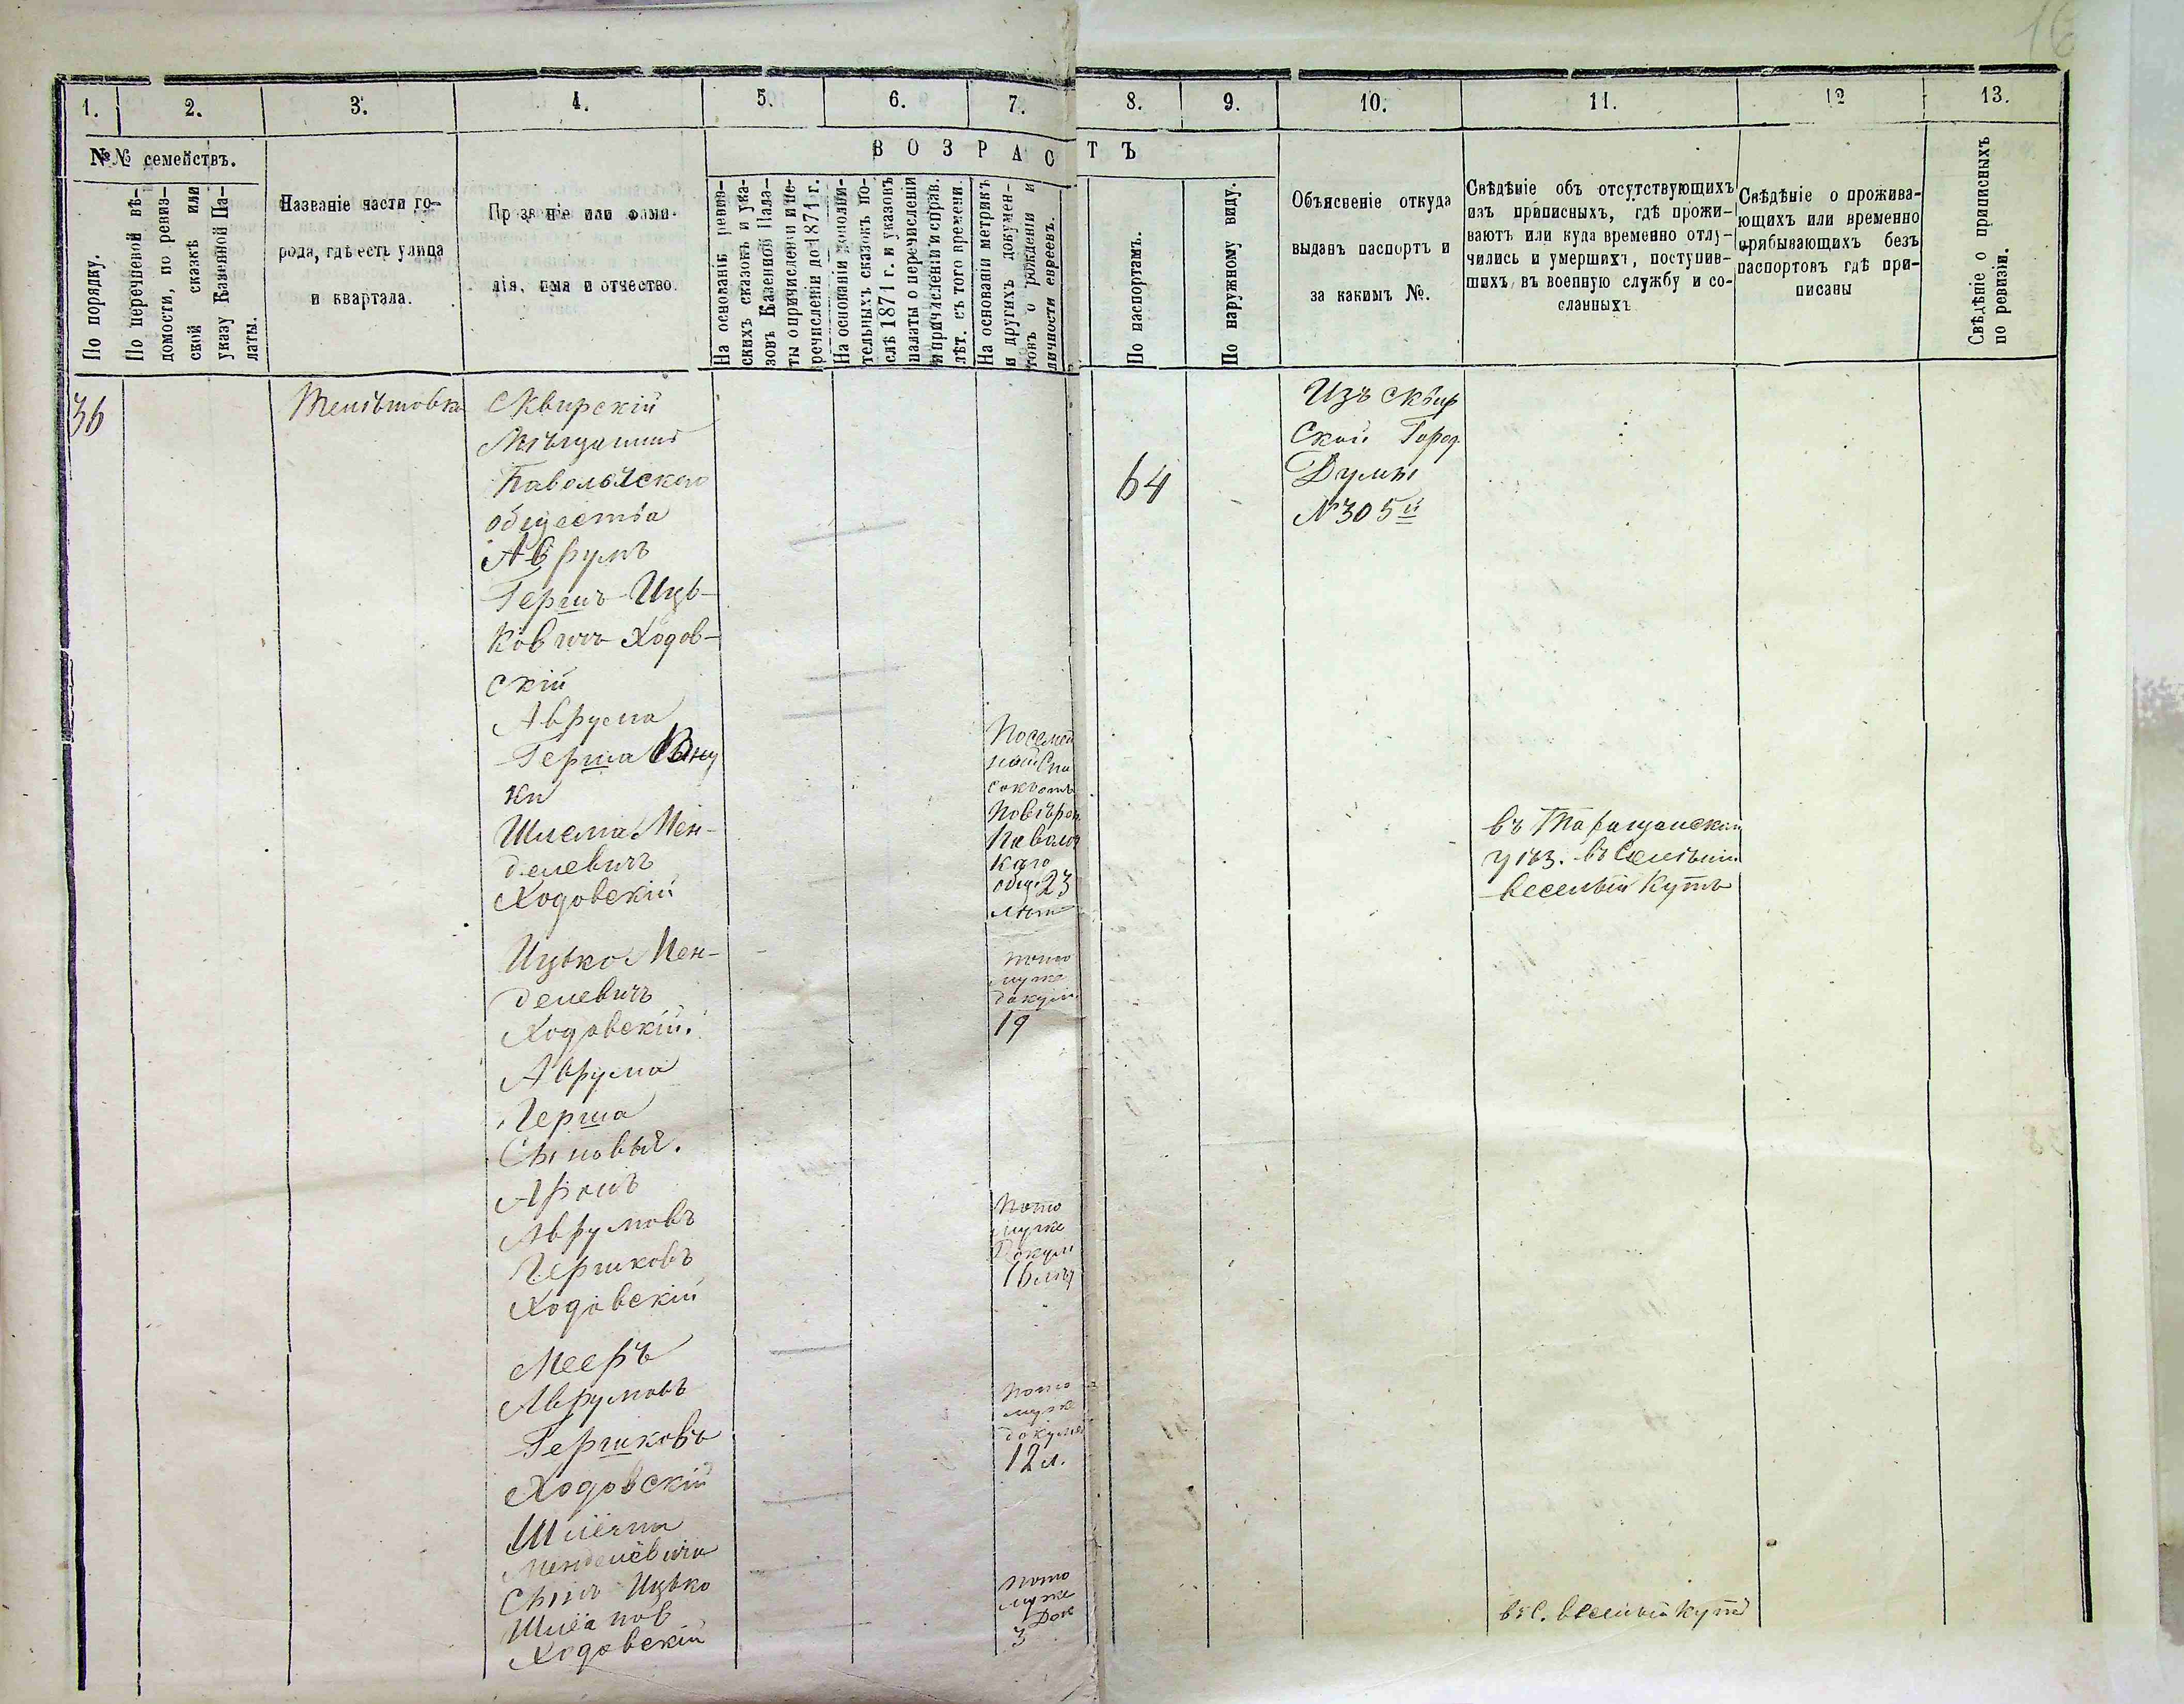 16
1.
2.
3.
4.
5.
6.
7.
8.
9.
10.
11.
12
13.
№№ семействъ.
По порядку.
По перечневой вѣ-
домости, по ревиз-
ской сказкѣ или
указу Казенной Па-
латы.
Названіе части го-
рода, гдѣ есть улица
и квартала.
Прозваніе или фами-
лія, имя и отчество.
ВОЗРАСТЪ
На основаніи ревиз-
скихъ сказокъ и ука-
зовъ Казенной Пала-
ты о причисленіи и пе-
речисленіи до 1871 г.
На основаніи дополни-
тельныхъ сказокъ по-
слѣ 1871 г. и указовъ
палаты о перечисленіи
и причисленіи и справ.
лѣт. съ того времени.
На основаніи метрикъ
и другихъ докумен-
товъ о рожденіи и
личности евреевъ.
По паспортамъ.
По наружному виду.
Объясненіе откуда
выданъ паспортъ и
за какимъ №.
Свѣдѣніе объ отсутствующихъ
изъ приписныхъ, гдѣ прожи-
ваютъ или куда временно отлу-
чились и умершихъ, поступив-
шихъ въ военную службу и со-
сланныхъ
Свѣдѣніе о прожива-
ющихъ или временно
прябывающихъ безъ
паспортовъ гдѣ при-
писаны
Свѣдѣніе о приписныхъ
по ревизіи.
36
Сквирскій
Мѣщанинъ
Паволочскаго
общества
Аврумъ
Гершъ Иць-
ковичъ Ходов-
скій
64
Изъ Сквир
Ской Город
Думы
№305й
Аврума
Герша Вну
ки
Шлема Мен-
делевичъ
Ходовскій
Посемей
ной Спи
сокъ
Паволоч
каго
общ 23
лѣт
въ Таращанскій
уѣз. въ Селеніи
веселый Кутъ
Ицько Мен-
делевичъ
Ходовскій.
пото
муже
докум
19
Аврума
Герша
Сыновья.
Аронъ
Аврумовъ
Гершковъ
Ходовскій
Пото
муже
Докум
16 лѣт
Мееръ
Аврумовъ
Гершковъ
Ходовскій
пото
муже
докуме
12 л.
Шлёма
Менделёвича
Сынъ Ицько
Шлёмов
Ходовскій
пото
муже
Док
3
въ С. веселый Кутъ